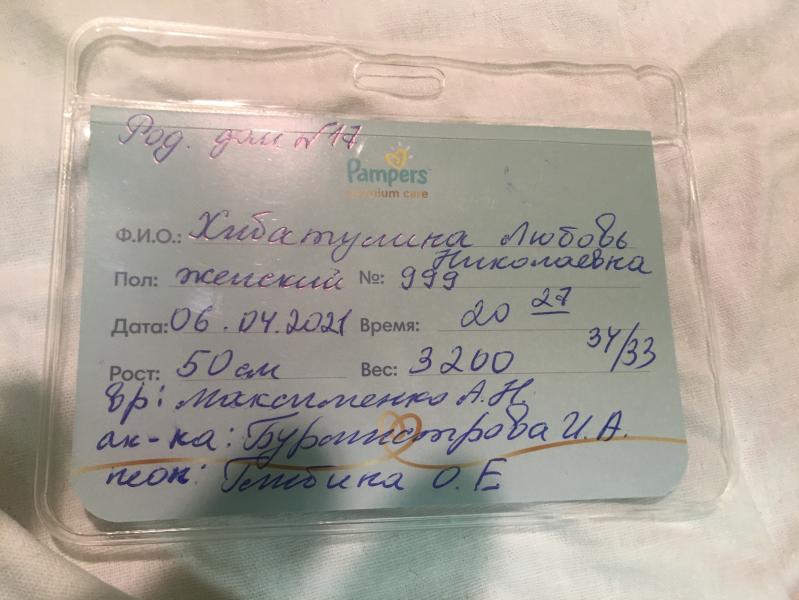 Род. дом №17
Pampers
premium care
Ф.И.О.: Хибатулина Любовь
Николаевна
Пол: женский №: 999
Дата: 06.04.2021 Время: 20 27
Рост: 50 см Вес: 3200 34/33
вр: Максименко А.Н.
ак-ка: Бурмистрова И.А.
неон: Глибина О.Е